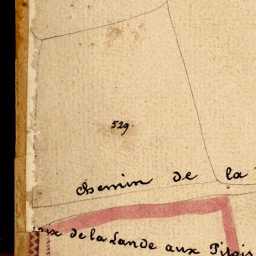 529.
Chemin de la
de la Lande aux Pitois